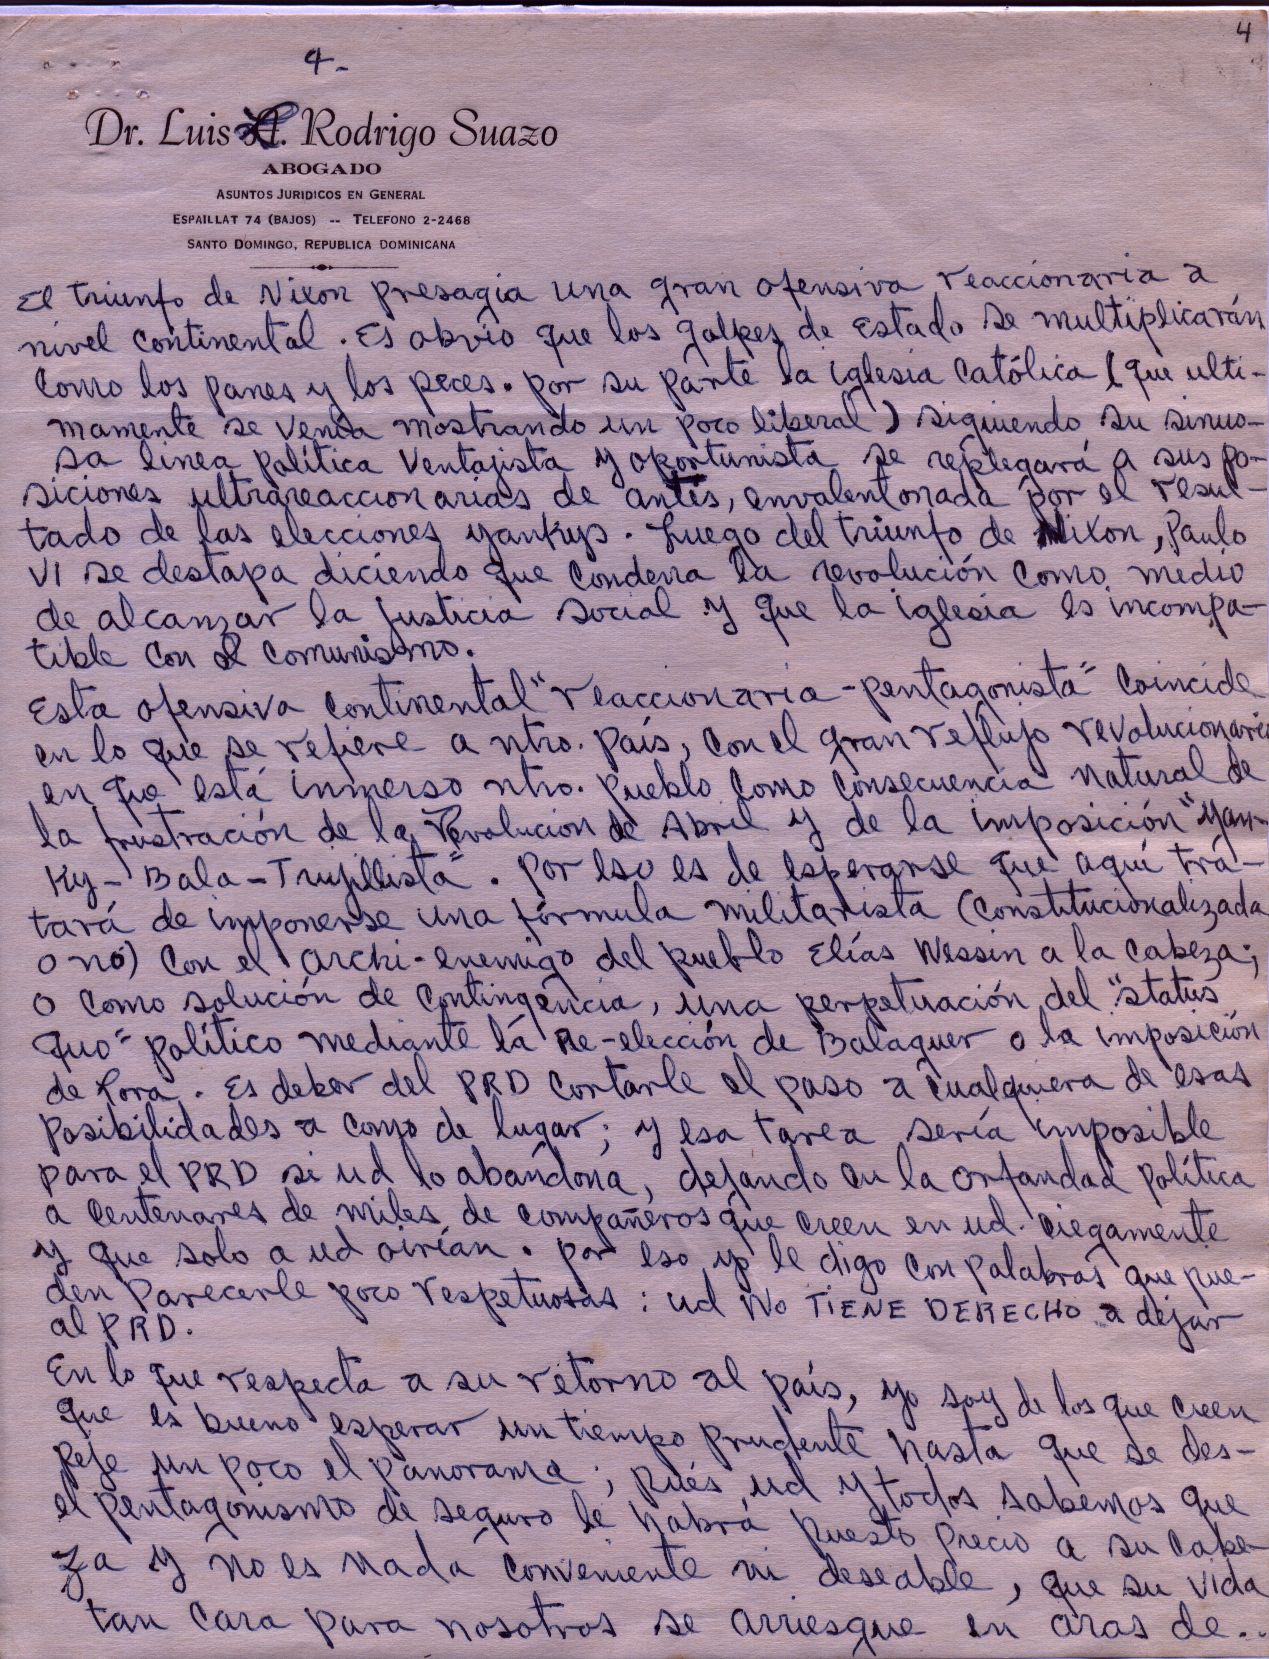 4
4-
Dr. Luis A. Rodrigo Suazo
ABOGADO
ASUNTOS JURIDICOS EN GENERAL
ESPAILLAT 74 (BAJOS) -- TELEFONO 2-2468
SANTO DOMINGO, REPUBLICA DOMINICANA
El triunfo de Nixon presagia una gran ofensiva reaccionaria a
nivel continental. Es obvio que los golpes de Estado se multiplicarán
como los panes y los peces. por su parte la iglesia católica (que ulti-
mamente se venía mostrando un poco liberal) siguiendo su sinuo-
sa línea política ventajista y oportunista se replegará a sus po-
siciones ultrareaccionarias de antes, envalentonada por el resul-
tado de las elecciones yankys. Luego del triunfo de Nixon, Paulo
VI se destapa diciendo que condena la revolución como medio
de alcanzar la justicia social y que la iglesia es incompa-
tible con el comunismo.
Esta ofensiva continental "reaccionaria-pentagonista" coincide
en lo que se refiere a ntro. país, con el gran reflujo revolucionario
en que está inmerso ntro. pueblo como consecuencia natural de
la frustración de la Revolución de Abril y de la imposición "yan-
ky-Bala-Trujillista". Por eso es de esperarse que aquí tra-
tará de imponerse una fórmula militarista (constitucionalizada
o nó) con el archi-enemigo del pueblo Elías Wessin a la cabeza;
o como solución de contingencia, una perpetuación del "status
quo" político mediante la Re-elección de Balaguer o la imposición
de Lora. Es deber del PRD cortarle el paso a cualquiera de esas
posibilidades a como de lugar; y esa tarea sería imposible
para el PRD si ud lo abandona, dejando en la orfandad política
a centenares de miles de compañeros que creen en ud. ciegamente
y que solo a ud oirían. Por eso yo le digo con palabras que pue-
den parecerle poco respetuosas: ud NO TIENE DERECHO a dejar
al PRD.
En lo que respecta a su retorno al país, yo soy de los que creen
que es bueno esperar un tiempo prudente hasta que se des-
peje un poco el panorama; pués ud y todos sabemos que
el pentagonismo de seguro le habrá puesto precio a su cabe-
za y no es nada conveniente ni deseable, que su vida
tan cara para nosotros se arriesgue en aras de...